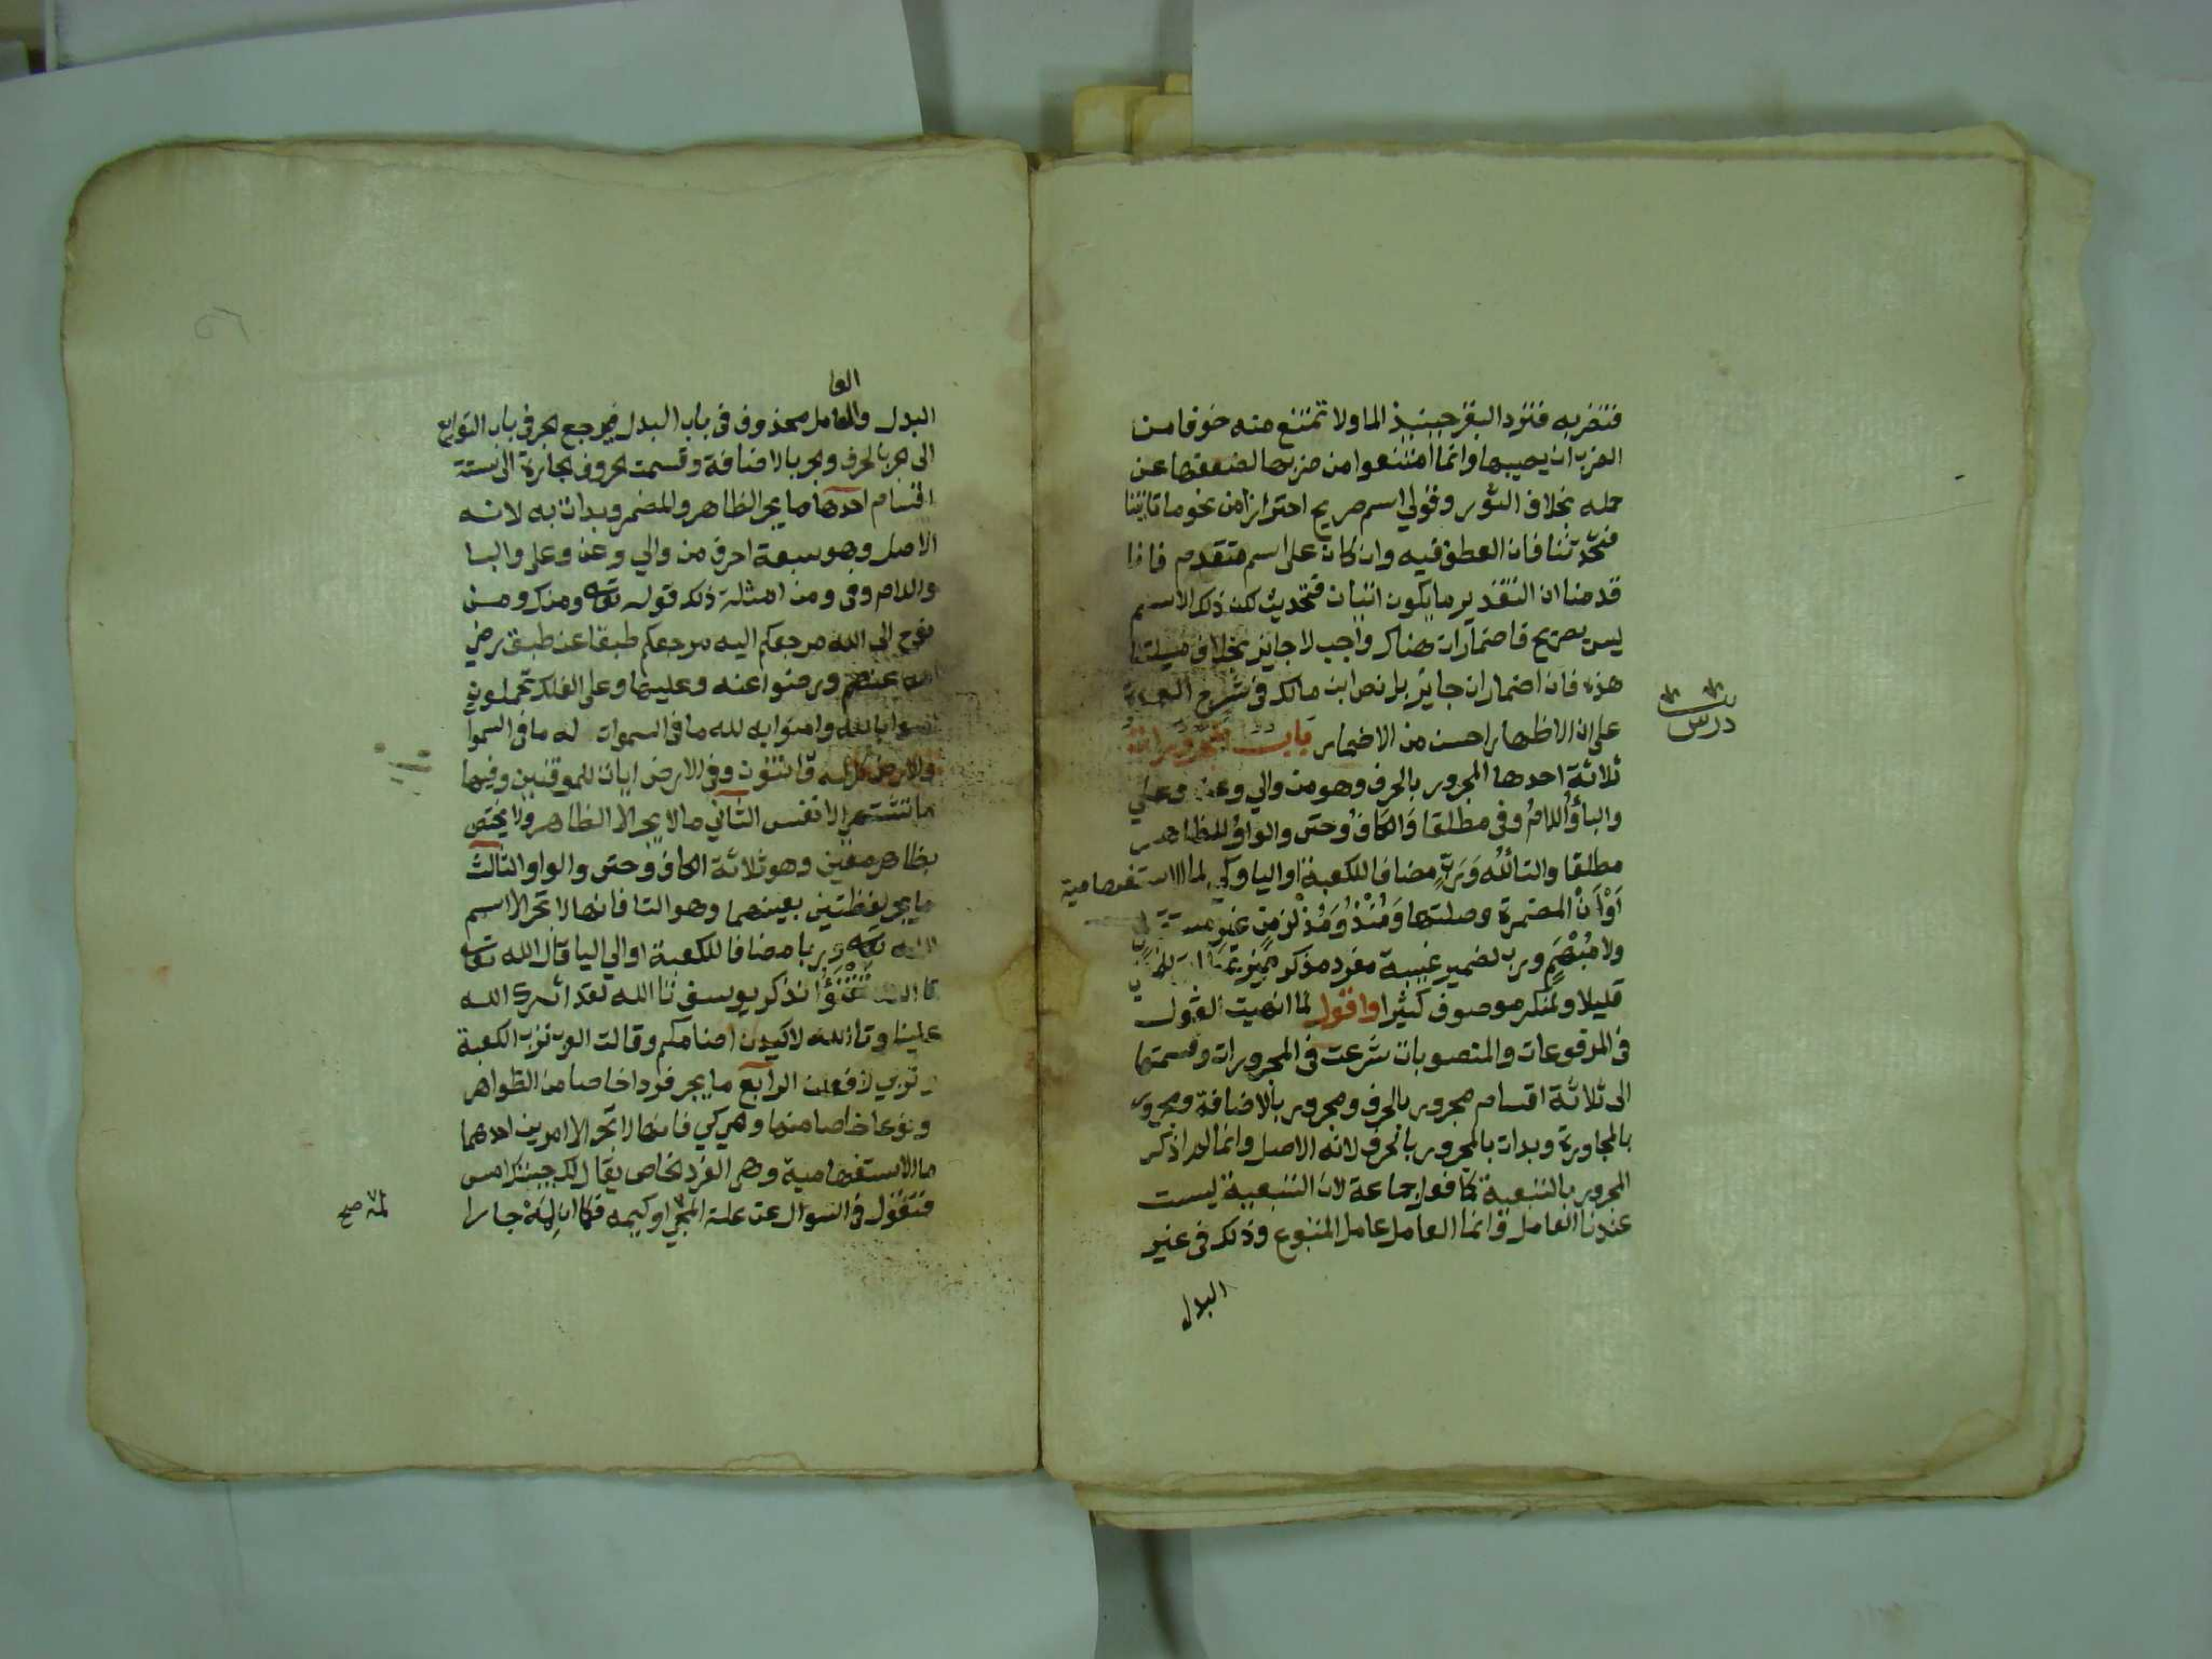 فتضربه فترد البقر حينيذ الما ولا تمتنع منه خوفا من
الضرب ان يصيبها وانما امتنعوا من ضربها لضعفها عن
حمله بخلاف الثور وقولي اسم صريح احترازا من نحو ما تاتينا
فتحدثنا فان العطف فيه وان كان على اسم متقدم فانا
قدمنا ان التقدير ما يكون اتيان فتحديث لكن ذلك الاسم
ليس بصريح فاضمار ان هناك واجب لا جايز بخلاف مسيلتنا
هذه فان اضمار ان جايز بل نص ابن مالك في شرح
على ان الاظهار احسن من الاضمار باب المجرورات
درس
ثلاثة احدها المجرور بالحرف وهو من والي وعن وعلي
والباؤ اللام وفي مطلقا والكاف وحتى والواو للظاهر
مطلقا والتا لله ورب مضافا للكعبة او اليا وكي لما الاستفهامية
او ان المضمرة وصلتها ومنذ ومذ لزمن غير مستقبل
ولا مبهم ورب لضمير غيبة مفرد مذكر مميز
قليلا ولمنكر موصوف كثيرا واقول لما انهيت القول
في المرفوعات والمنصوبات شرعت في المجرورات وقسمتها
الى ثلاثة اقسام مجرور بالحرف ومجرور بالاضافة ومجرور
بالمجاورة وبدات بالمجرور بالحرف لانه الاصل وانما لم اذكر
المجرور بالتبعية كما فعل جماعة لان التبعية ليست
عندنا العامل وانما العامل عامل المتبوع وذلك في غير
البدل
العا
البدل والعامل محذوف في باب البدل فيرجع الجر في باب التوابع
الى الجر بالحرف والجر بالاضافة وقسمت الحروف الجارة الى ستة
اقسام احدها ما يجر الظاهر والمضمر وبدات به لانه
الاصل وهو سبعة احرف من والي وعن وعلى والبا
واللام وفي ومن امثلة ذلك قوله تعه ومنك ومن
نوح الى الله مرجعكم اليه مرجعكم طبقا عن طبق رضي
الله عنهم ورضوا عنه وعليها وعلى الفلك تحملون
امنوا بالله وامنوا به لله ما في السموات له ما في السموا
والارض كل له قانتون وفي الارض ايات للموقنين وفيها
ما تشتهي الانفس الثاني ما لا يجر الا الظاهر ولا يختص
بظاهر معين وهو ثلاثة الكاف وحتى والواو الثالث
ما يجر لفظتين بعينهما وهو التا فانها لا تجر الا اسم
الله تعه وربا مضافا للكعبة او الي اليا قال الله تعا
تا الله تفتؤا تذكر يوسف تا الله لقد اثرك الله
علينا وتا الله لاكيدن اصنامكم وقالت العرب ترب الكعبة
وتربي لافعلن الرابع ما يجر فردا خاصا من الظواهر
ونوعا خاصا منها وهي كي فانها لا تجر الا امرين احدهما
ما الاستفهامية وهي الفرد الخاص يقال لك جيتك امس
فتقول في السوال عن علة المجي او كيمه فكما ان لمه جارا
لمه صح